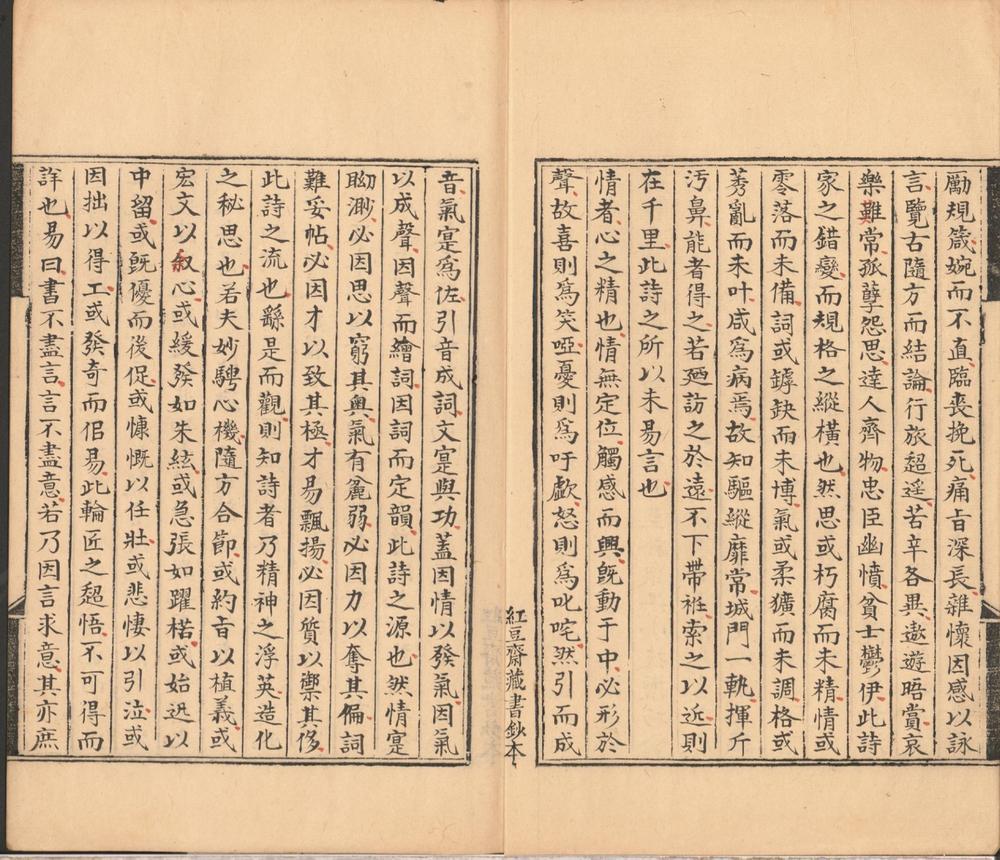 勵規箴婉而不直臨喪挽死痛旨深長雜懷因感以詠
言覽古隨方而結論行旅超遥苦辛各異遨遊晤賞哀
樂難常孤孽怨思達人齊物忠臣幽憤貧士鬱伊此詩
家之錯變而規格之縱横也然思或朽腐而未精情或
零落而未備詞或罅缺而未博氣或柔獷而未調格或
莠亂而未叶咸爲病焉故知驅縱靡常城門一軌揮斤
汚鼻能者得之若廼訪之於遠不下帶袵索之以近則
在千里此詩之所以未易言也
情者心之精也情無定位觸感而興旣動于中必形於
聲故喜則爲笑啞憂則爲吁戲怒則爲叱咤然引而成
紅豆齋藏書鈔本
音氣寔爲佐引音成詞文寔與功蓋因情以發氣因氣
以成聲因聲而繪詞因詞而定韻此詩之源也然情寔
眑渺必因思以窮其奥氣有麄弱必因力以奪其偏詞
難妥帖必因才以致其極才易飄揚必因質以禦其侈
此詩之流也繇是而觀則知詩者乃精神之浮英造化
之秘思也若夫妙騁心機隨方合節或約旨以植義或
宏文以叙心或緩發如朱絃或急張如躍楛或始迅以
中留或旣優而後促或慷慨以任壯或悲悽以引泣或
因拙以得工或發奇而佀易此輪匠之超悟不可得而
詳也易曰書不盡言言不盡意若乃因言求意其亦庶